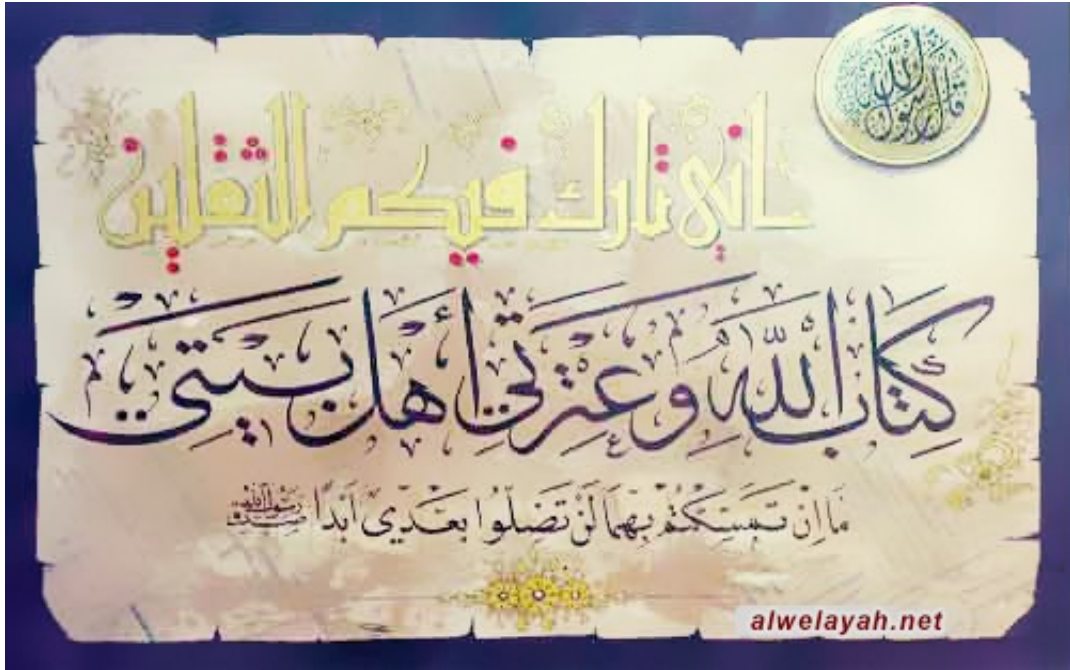 قال رسول الله
إني تارك فيكم الثقلين
كِتَابَ اللهِ وَعِتْرَتِي أَهْلَ بَيْتِي
مَا اِنْ تَمَسَكْتُمْ بِهِمَا لَنْ تَضِلّوُا بَعْدِي اَبَدًا
alwelayah.net